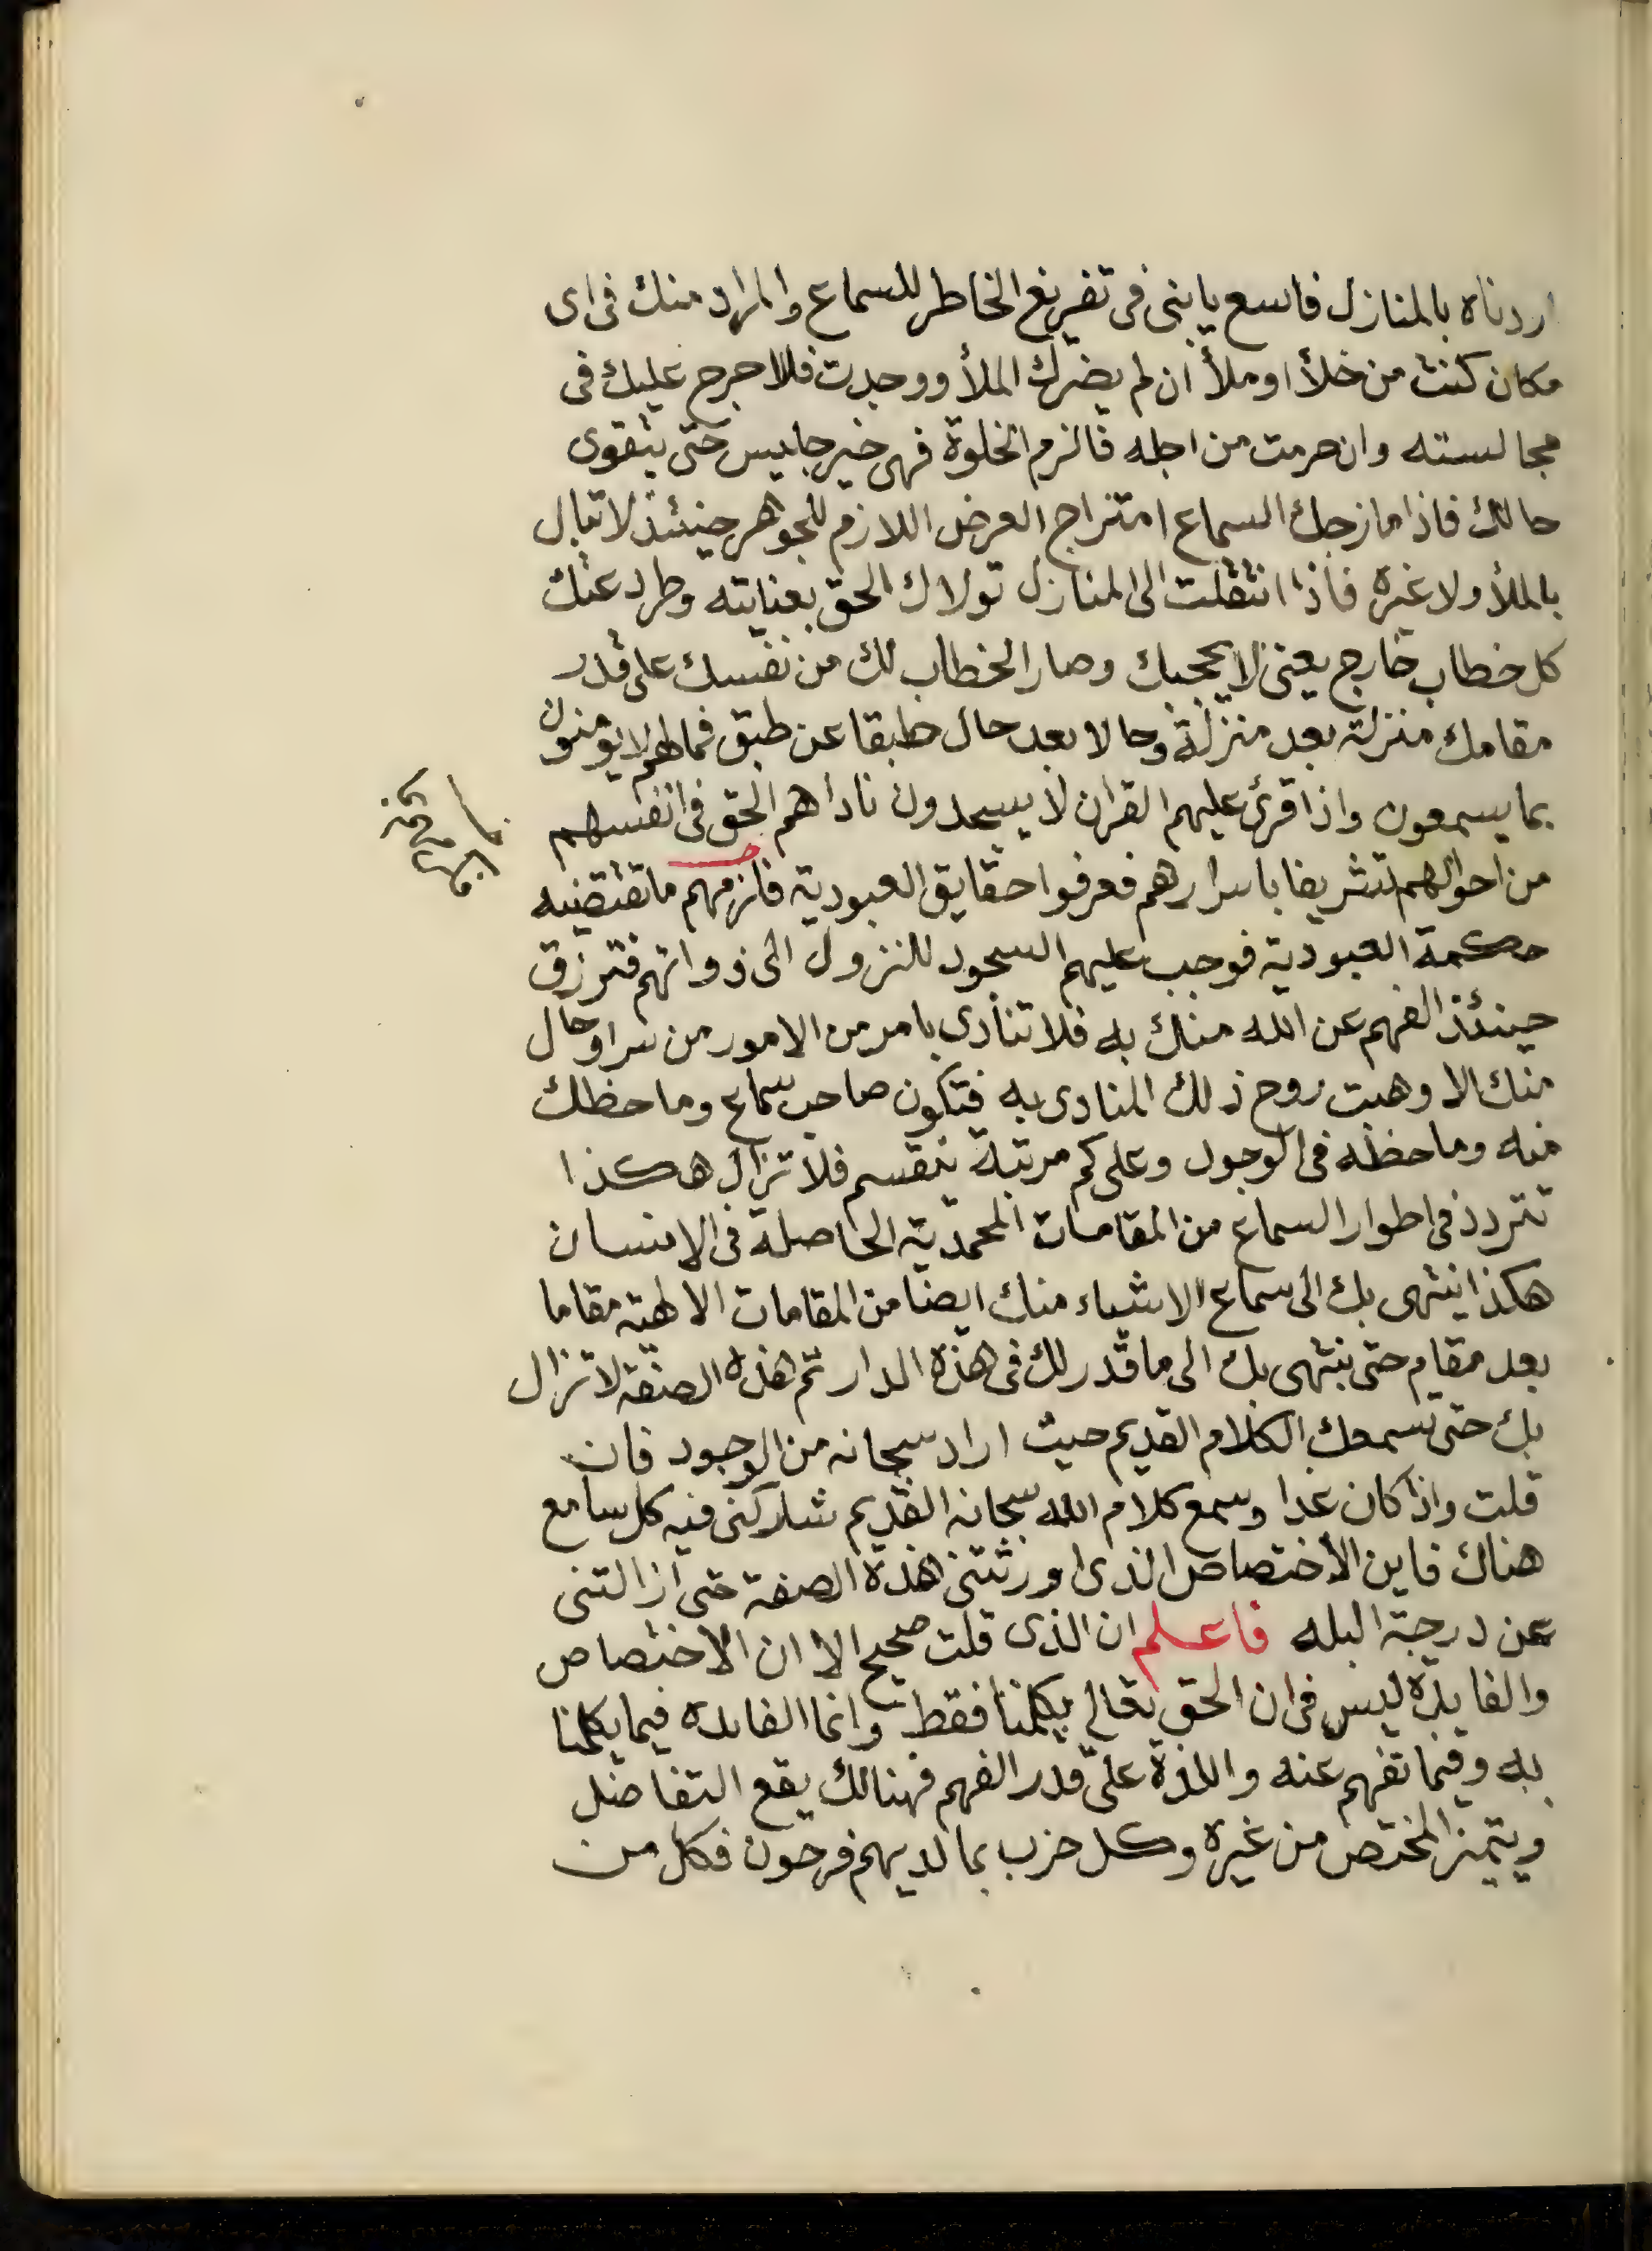 اردناه بالمنازل فاسع يا بنى فى تفريغ الخاطر للسماع والمراد منك فى اى
مكان كنت من خلأ او ملأ ان لم يضرك الملأ ووجدت فلا حرج عليك فى
مجالسته وان حرمت من اجله فالزم الخلوة فهى خير جليس حتى يتقوى
حالك فاذا مازجك السماع امتزاج العرض اللازم للجوهر حينئذ لا تبال
بالملأ ولا غيره فاذا انتقلت الى المنازل تولاك الحق بعنايته وطرد عنك
كل خطاب خارج يعنى لا يحجبك وصار الخطاب لك من نفسك على قدر
مقامك منزلة بعد منزلة وحالا بعد حال طبقا عن طبق فما لهم لا يومنون
بما يسمعون واذا قرئ عليهم القران لا يسجدون ناداهم الحق فى انفسهم
من احوالهم تشريفا باسرارهم فعرفوا حقايق العبودية فالزمهم ما تقتضيه
حكمة العبودية فوجب عليهم السجود للنزول الى ذواتهم فترزق
حينئذ الفهم عن الله منك به فلا تنادى بامر من الامور من سر او حال
منك الا وهبت روح ذلك المنادى به فتكون صاحب سماع وما حظك
منه وما حظه فى الوجود وعلى كم مرتبة ينقسم فلا تزال هكذا
تتردد فى اطوار السماع من المقامات المحمدية الحاصلة فى الانسان
هكذا ينتهى بك الى سماع الاشياء منك ايضا من المقامات الالهية مقاما
بعد مقام حتى ينتهى بك الى ما قدر لك فى هذه الدار ثم هذه الصفة لا تزال
بك حتى تسمعك الكلام القديم حيث اراد سبحانه من الوجود فان
قلت واذا كان غدا وسمع كلام الله سبحانه القديم شاركنى فيه كل سامع
هناك فاين الاختصاص الذى اورثتنى هذه الصفة حتى ازالتنى
عن درجة البله فاعلم ان الذى قلت صحيح الا ان الاختصاص
والفايدة ليس فى ان الحق تعالى يكلمنا فقط وانما الفايده فيما يكلمنا
به وفيما تفهم عنه واللذة على قدر الفهم فهنالك يقع التفاضل
ويتميز المختص من غيره وكل حزب بما لديهم فرحون فكل من